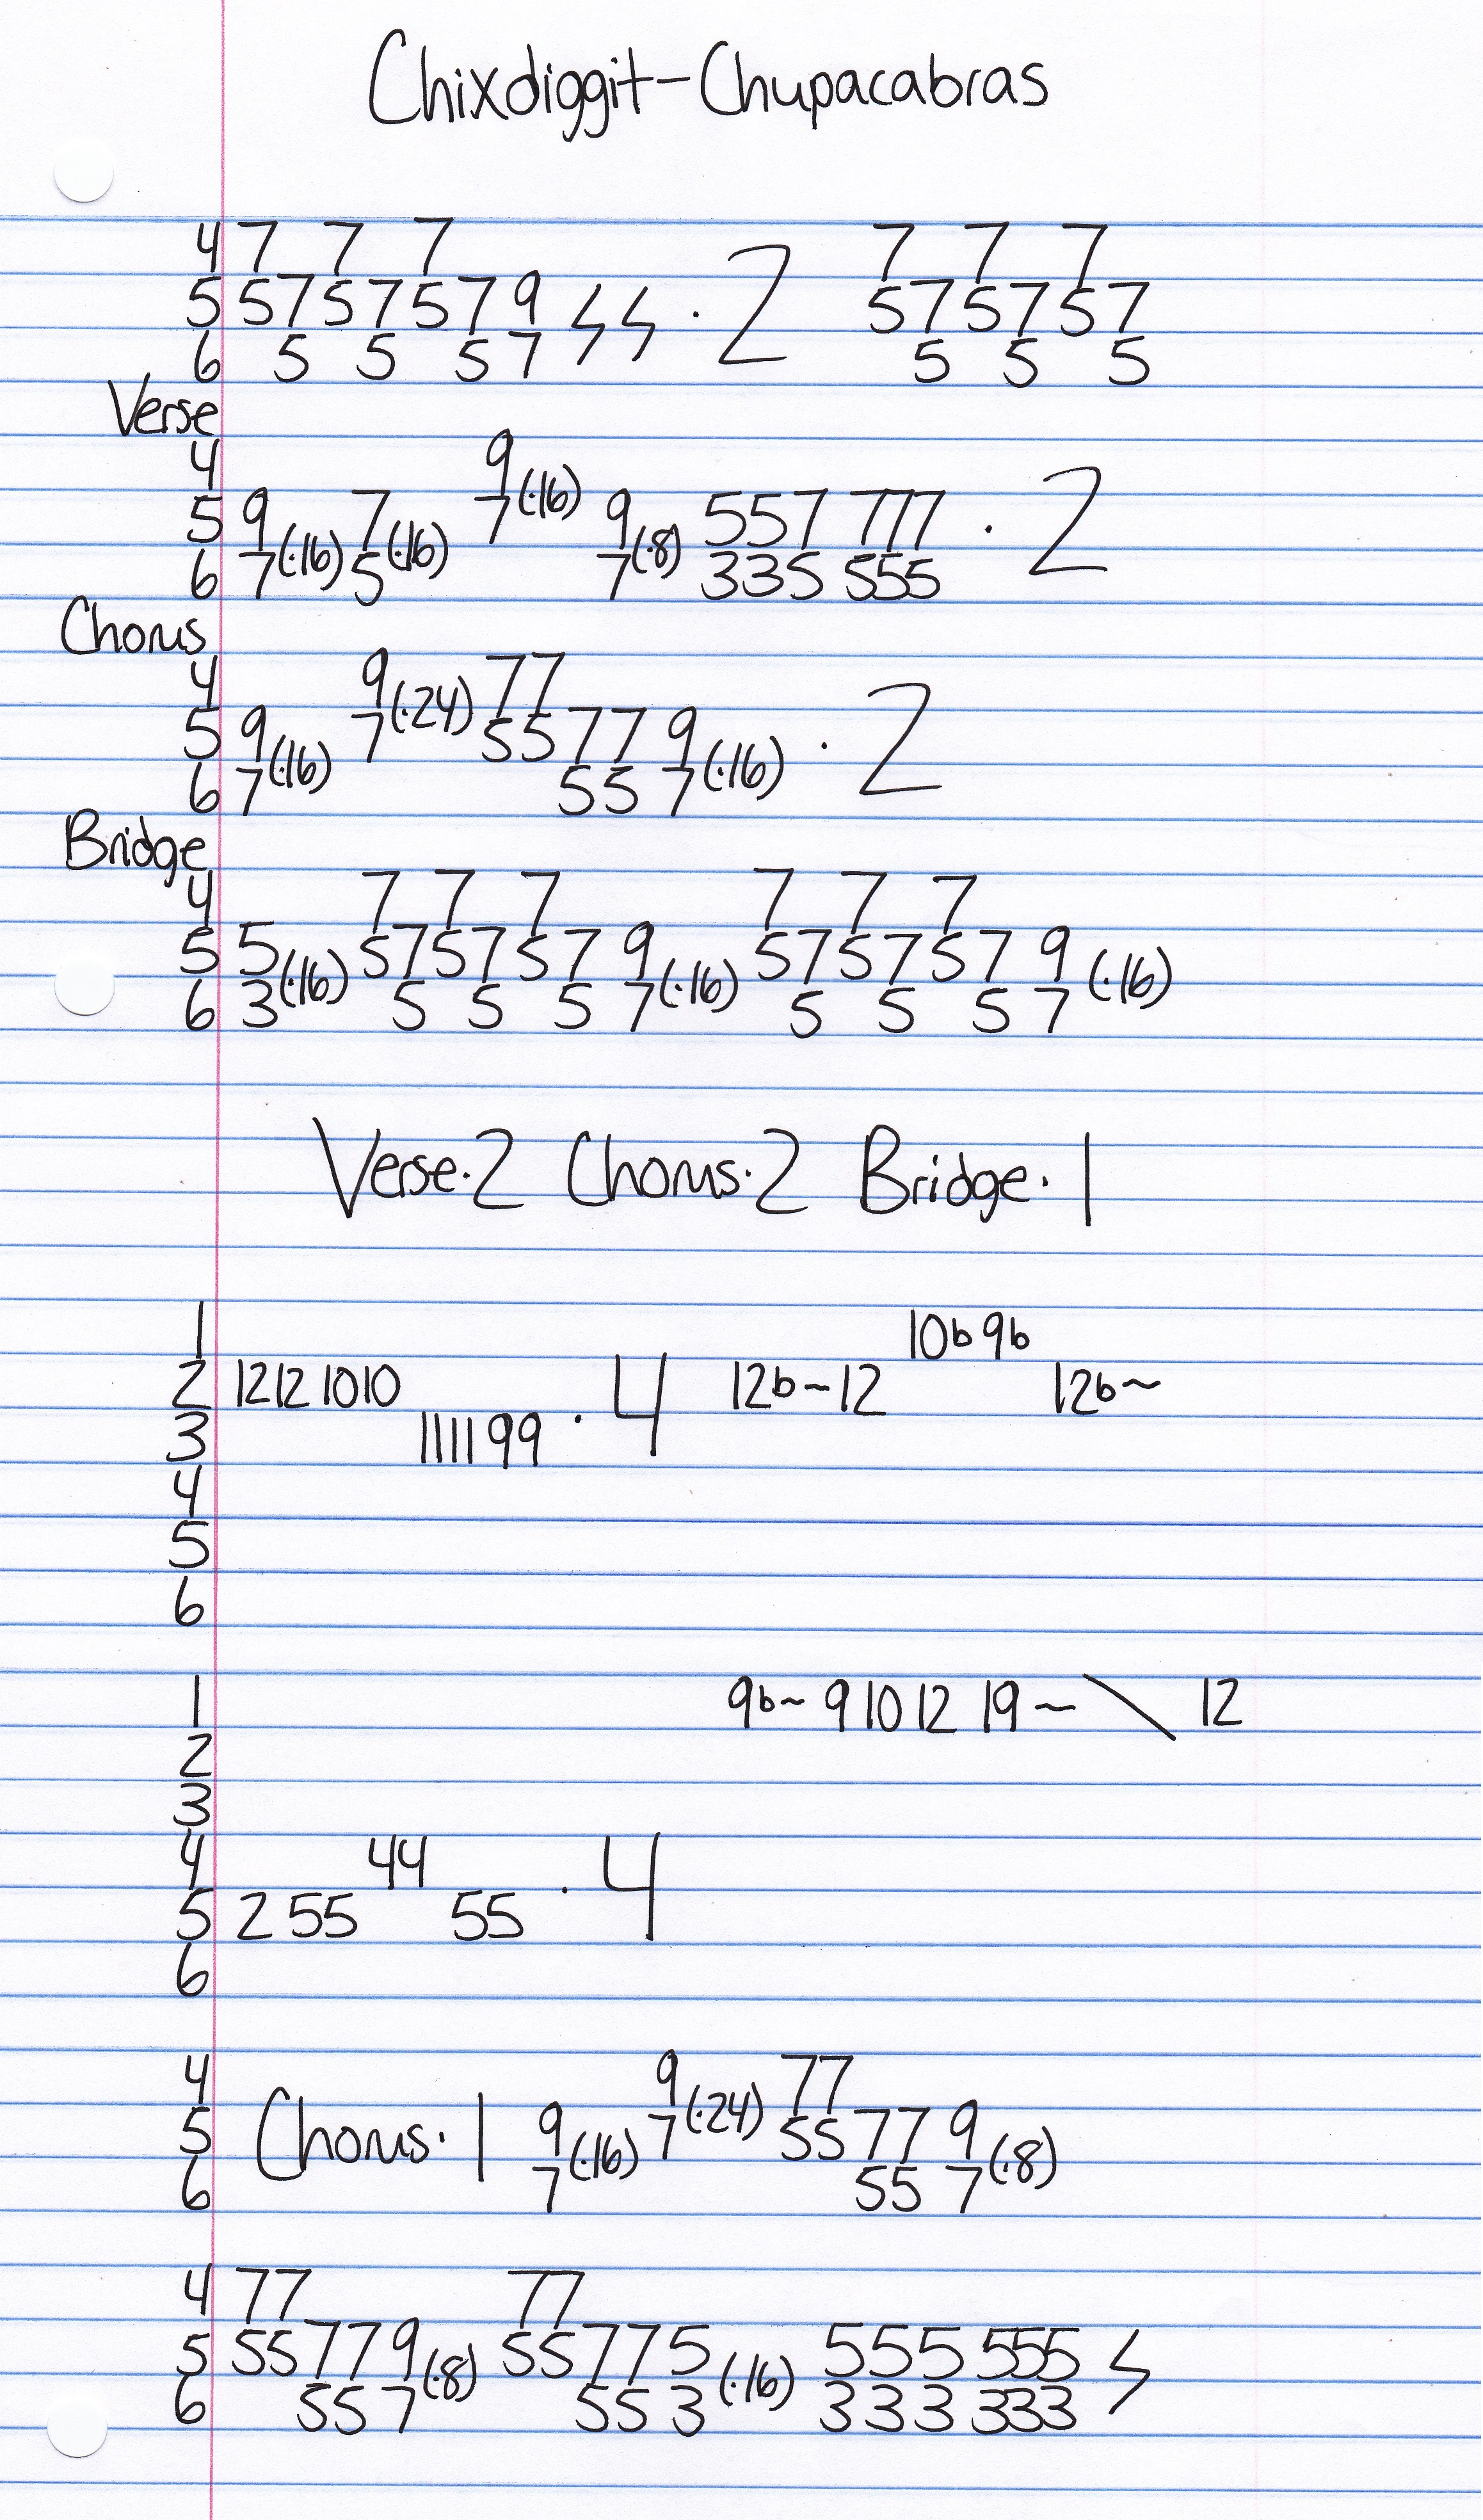 Chixdiggit-Chupacabras
4 7 7 7 7 7 7
5 5 7 5 7 5 7 9 · 2 5 7 5 7 5 7
6 5 5 5 7 5 5 5
Verse
4 9
5 9 7 7(·16) 9 557 777 · 2
6 7(·16) 5(·16) 7(·8) 335 555
Chorus
4 9 77
5 9 7(·24) 55 77 9 · 2
6 7(·16) 55 7(·16)
Bridge
4 7 7 7 7 7 7
5 5 57 57 57 9 57 57 57 9
6 3(·16) 5 5 5 7(·16) 5 5 5 7 (·16)
Verse·2 Chorus·2 Bridge·1
1 10b 9b
2 12 12 10 10 · 4 12b~12 12b~
3 11 11 9 9
4
5
6
1 9b~ 9 10 12 19~\ 12
2
3
4 44
5 2 55 55 · 4
6
4 9 77
5 Chorus·1 9 7(·24) 55 77 9
6 7(·16) 55 7(·8)
4 77 77
5 55 77 9 55 77 5 555 555
6 55 7(·8) 55 3(·16) 333 333